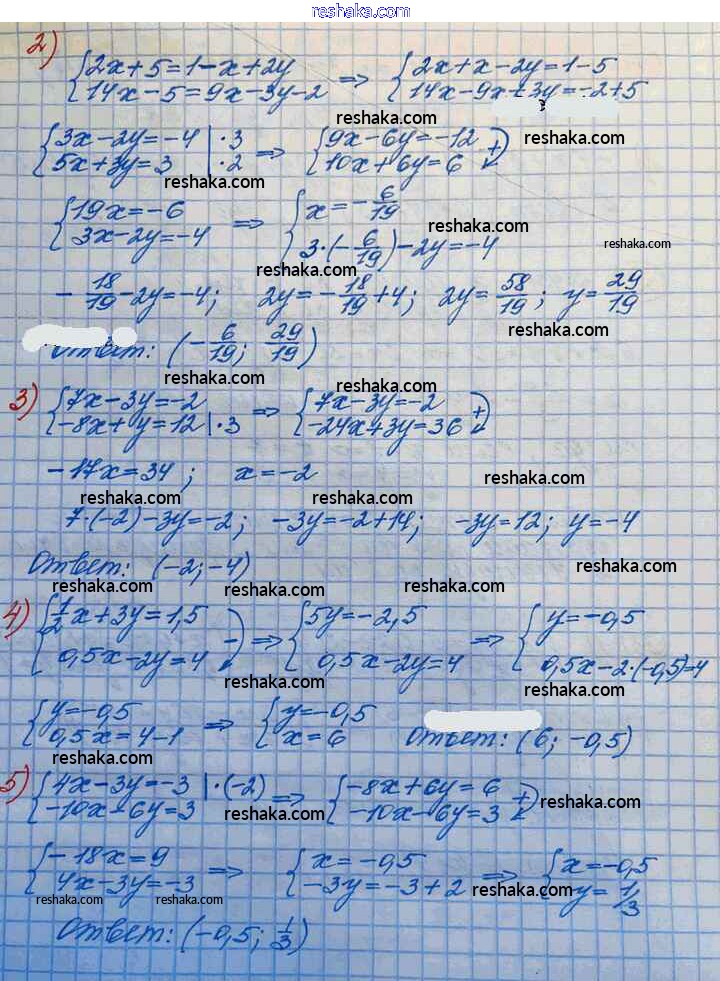 reshaka.com
2) {2x+5=1-x+2y => {2x+x-2y=1-5
{14x-5=9x-3y-2 {14x-9x+3y=-2+5
reshaka.com
reshaka.com
{3x-2y=-4 |·3 => {9x-6y=-12 +
{5x+3y=3 |·2 {10x+6y=6
reshaka.com
reshaka.com
{19x=-6 => {x=-6/19
{3x-2y=-4 {3·(-6/19)-2y=-4
reshaka.com
reshaka.com
reshaka.com
-18/19-2y=-4; 2y=-18/19+4; 2y=58/19; y=29/19
reshaka.com
Ответ: (-6/19; 29/19)
reshaka.com
reshaka.com
3) {7x-3y=-2 => {7x-3y=-2 +
{-8x+y=12 |·3 {-24x+3y=36
-17x=34; x=-2
reshaka.com
reshaka.com
reshaka.com
7·(-2)-3y=-2; -3y=-2+14; -3y=12; y=-4
Ответ: (-2; -4)
reshaka.com
reshaka.com
reshaka.com
reshaka.com
4) {1/2x+3y=1,5 - => {5y=-2,5 => {y=-0,5
{0,5x-2y=4 {0,5x-2y=4 {0,5x-2·(-0,5)=4
reshaka.com
reshaka.com
{y=-0,5 => {y=-0,5
{0,5x=4-1 {x=6 Ответ: (6; -0,5)
reshaka.com
5) {4x-3y=-3 |·(-2) => {-8x+6y=6 +
{-10x-6y=3 {-10x-6y=3
reshaka.com
reshaka.com
{-18x=9 => {x=-0,5 => {x=-0,5
{4x-3y=-3 {-3y=-3+2 {y=1/3
reshaka.com
reshaka.com
reshaka.com
Ответ: (-0,5; 1/3)